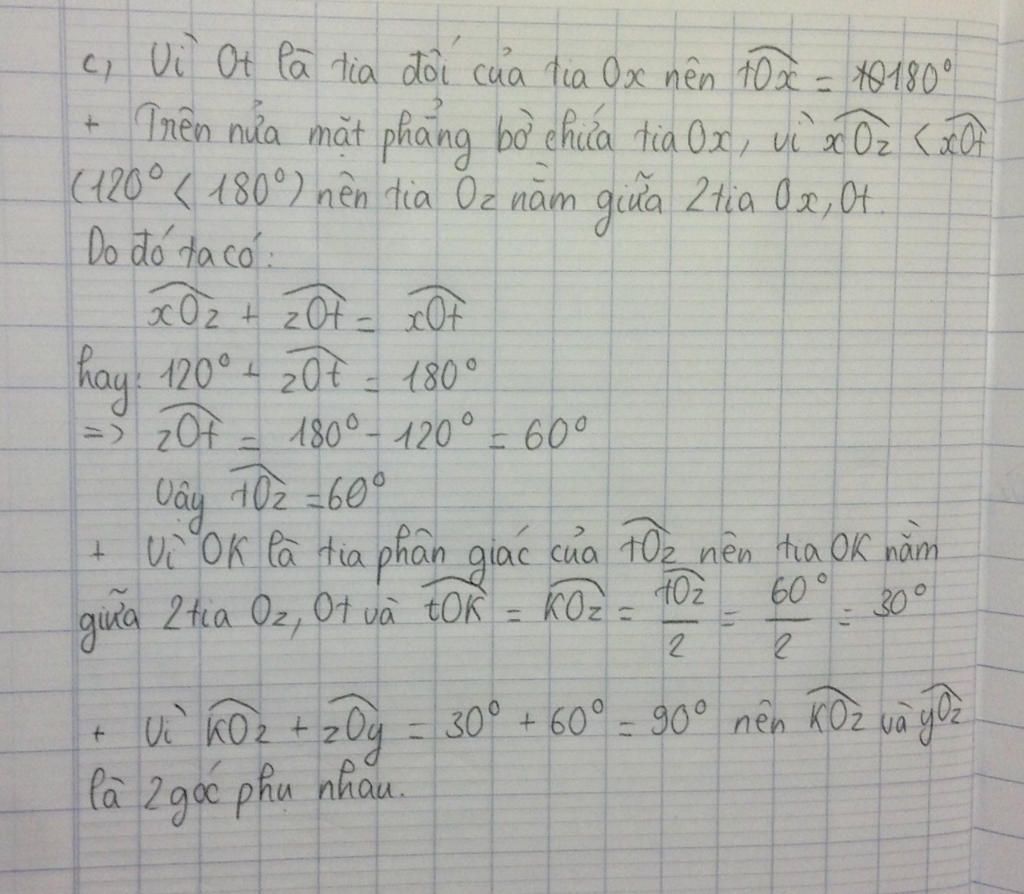 c, Vì Ot là tia đối của tia Ox nên tOx = 180°
+ Trên nửa mặt phẳng bờ chứa tia Ox, vì xOz < xOt
(120° < 180°) nên tia Oz nằm giữa 2 tia Ox, Ot.
Do đó ta có:
xOz + zOt = xOt
hay: 120° + zOt = 180°
=> zOt = 180° - 120° = 60°
Vậy tOz = 60°
+ Vì OK là tia phân giác của tOz nên tia OK nằm
giữa 2 tia Oz, Ot và tOK = KOz = tOz/2 = 60°/2 = 30°
+ Vì KOz + zOy = 30° + 60° = 90° nên KOz và yOz
là 2 góc phụ nhau.